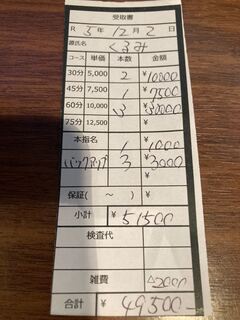 受取書
R 5年 12月 2日
源氏名 くるみ
コース 単価 本数 金額
30分 5,000 2 ¥10000
45分 7,500 1 ¥7500
60分 10,000 3 ¥30000
75分 12,500 ¥
本指名 1 ¥1000
バックアップ 3 ¥3000
¥
保証( ~ ) ¥
小計 ¥51500
検査代
雑費 △2000
合計 ¥49,500-